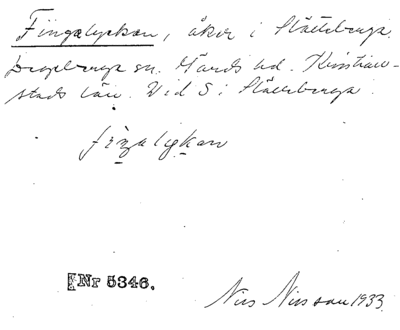 Fingalyckan, åker i Slätteberga.
Degeberga sn. Gärds hd. Kristian-
stads län. Vid S i Slätteberga
fiŋalykan
Nr 5346.
Nils Nilsson 1933.